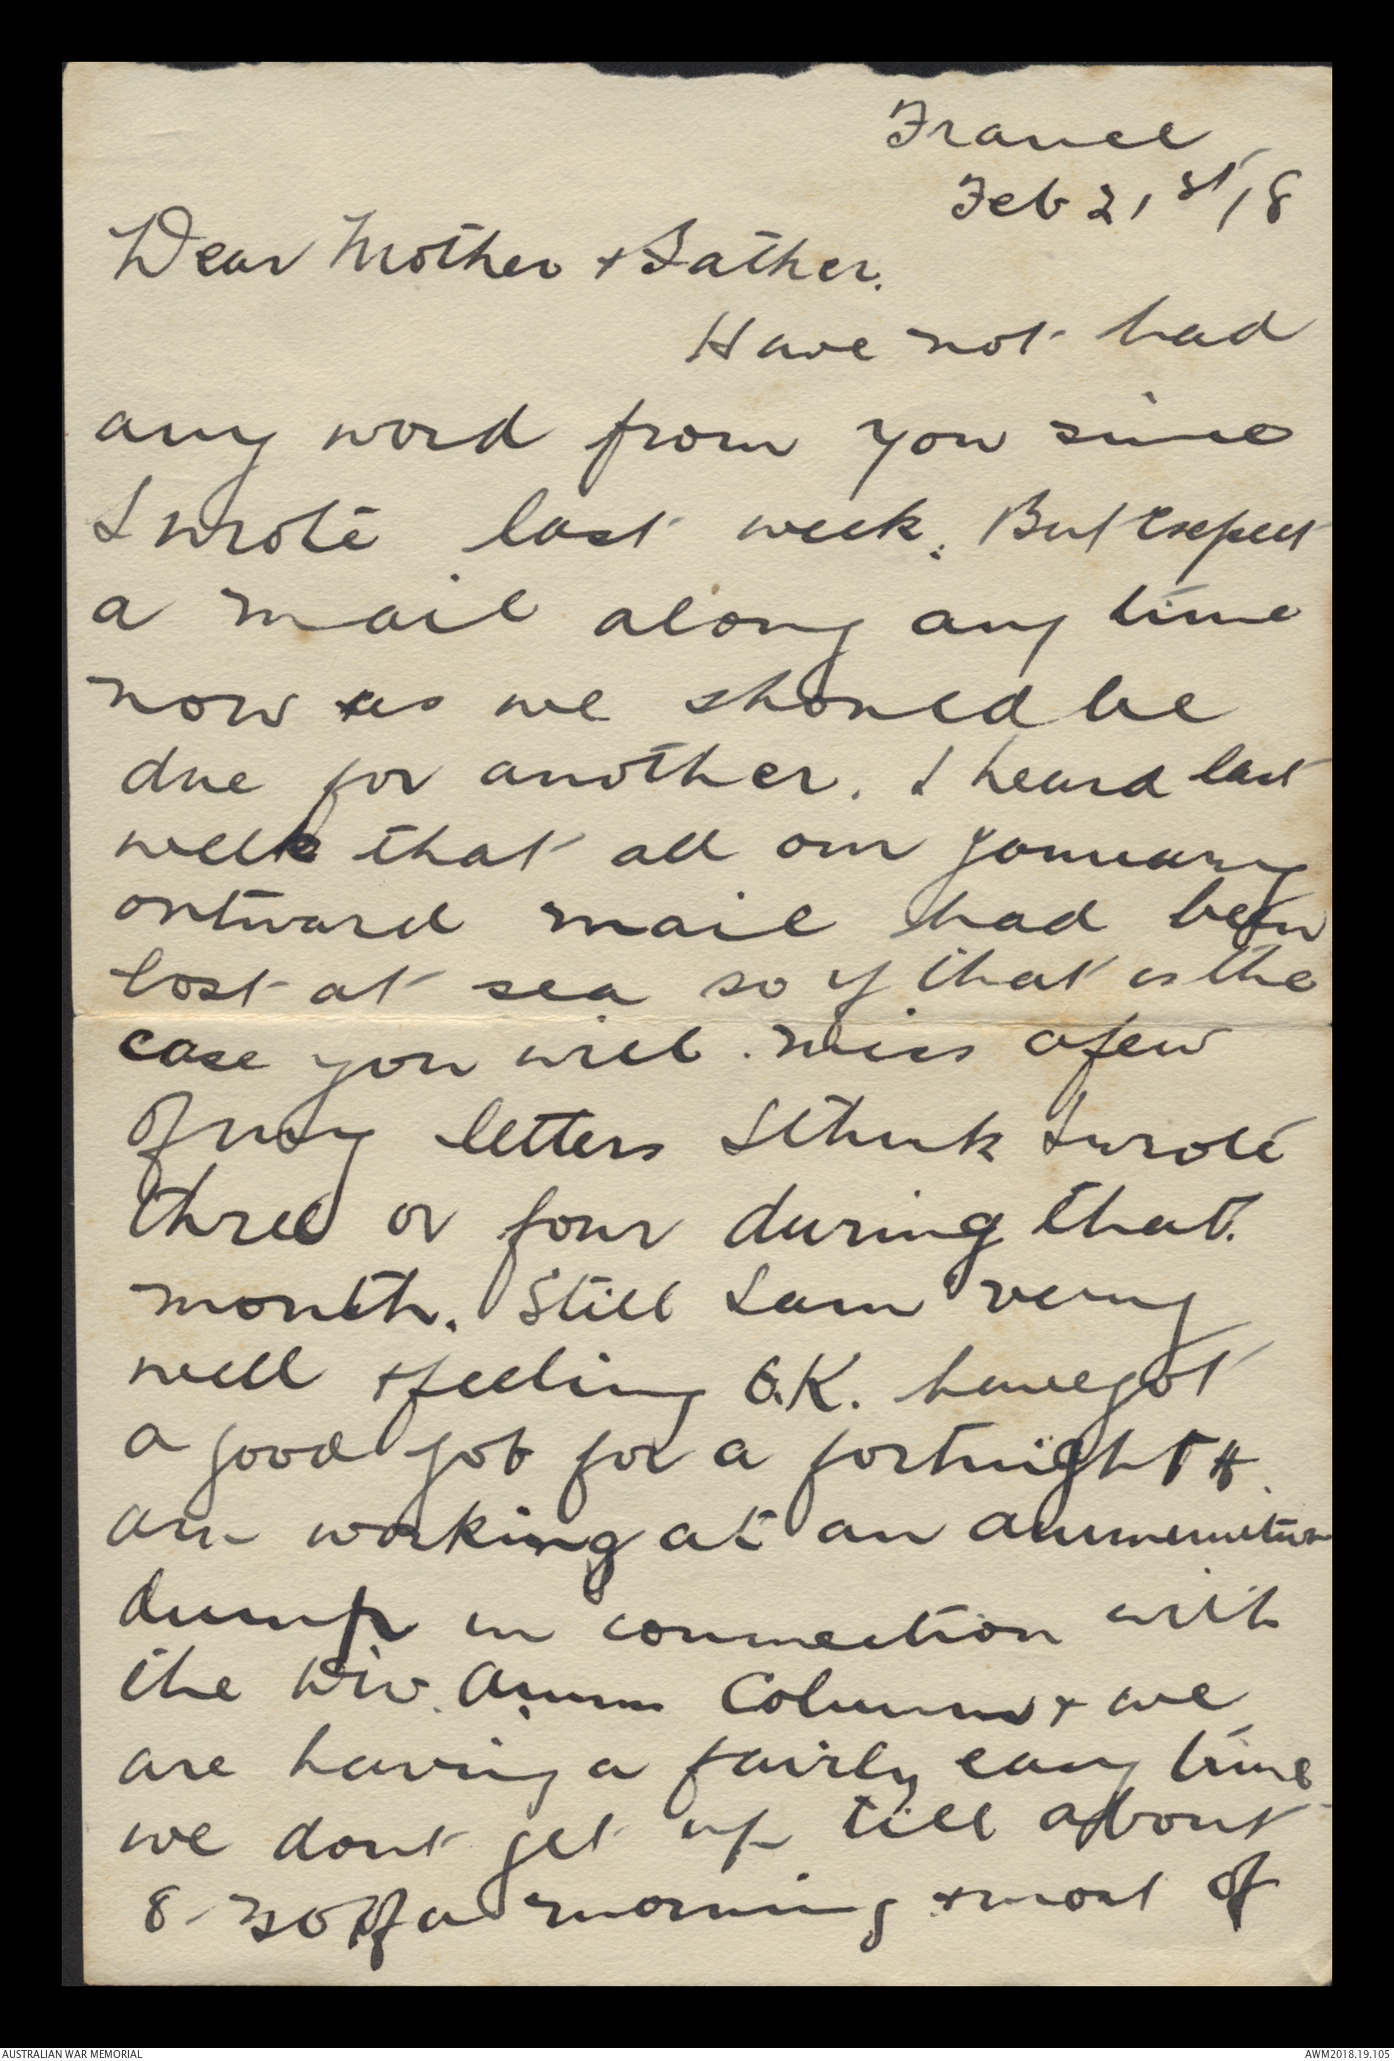 France
Feb 21st/18
Dear Mother + Father.
Have not had
any word from you since
I wrote last week. But expect
a mail along any time
now as we should be
due for another. I heard last
week that all our January
outward mail had been
lost at sea so if that is the
case you will miss a few
of my letters I think I wrote
three or four during that
month. Still I am very
well + feeling O.K. have got
a good job for a fortnight +
am working at an ammunition
dump in connection with
the Div. Ammn Column + we
are having a fairly easy time
we dont get up till about
8-30 of a morning + most of
AUSTRALIAN WAR MEMORIAL
AWM2018.19.105